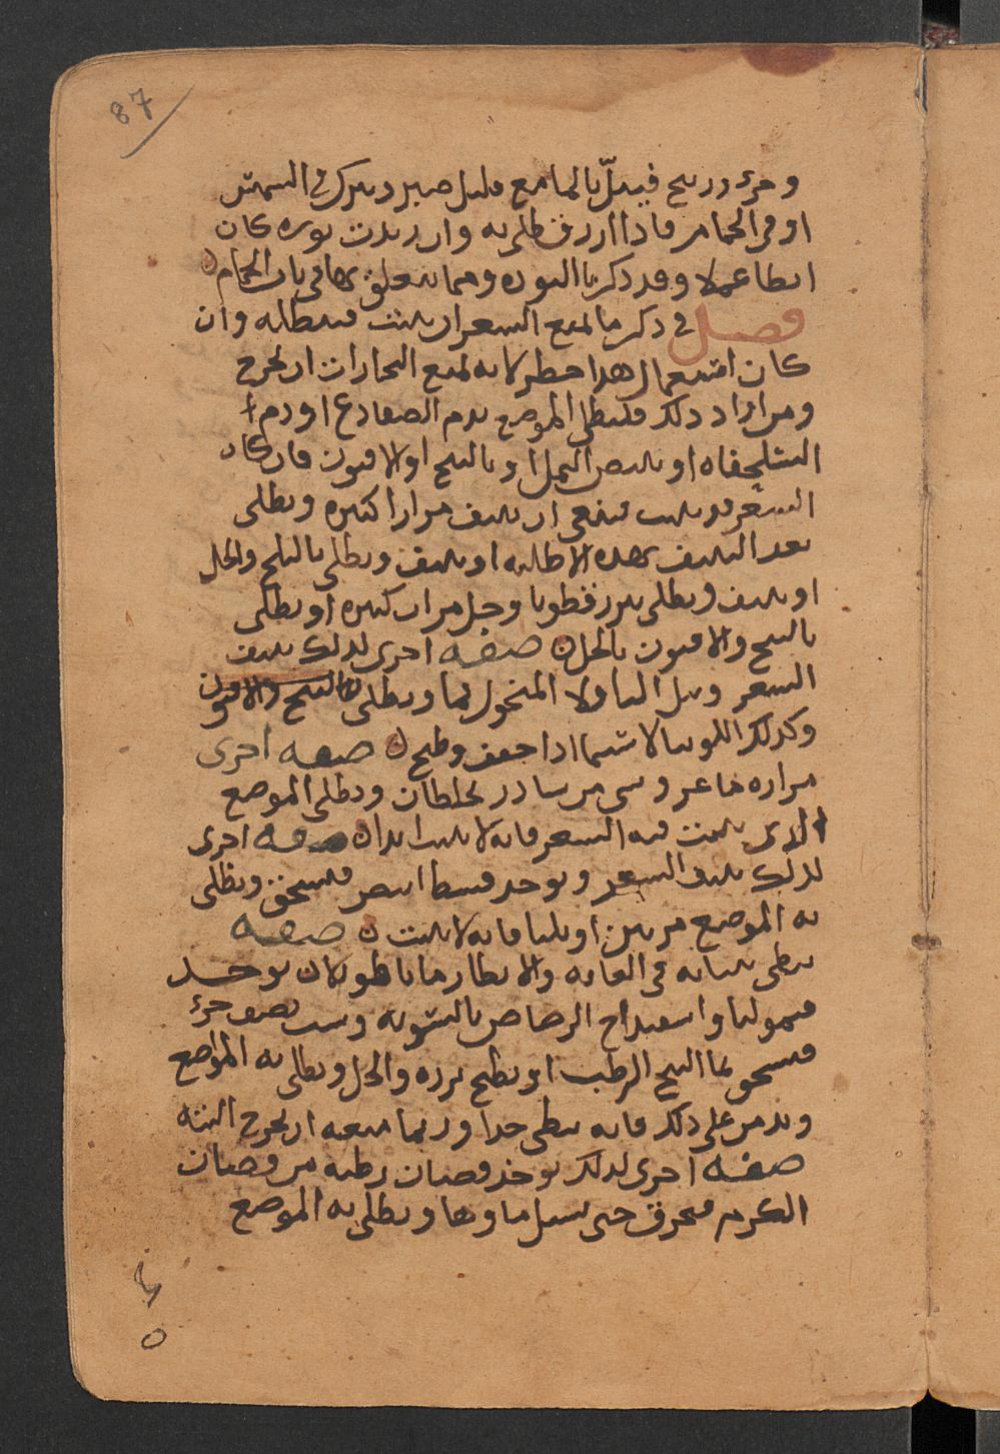 87
وجزء زرنيخ فيبلّ بالماء مع قليل صبر ويترك في الشمس
او في الحمام فاذا اردت طلي به وان زيدت نوره كان
ابطا عملا وقد ذكرنا النوره ومما يتعلق بها في باب الحمام
فصل في ذكر ما يمنع الشعر ان ينبت فيبطله وان
كان استعمال هذا خطر لانه يمنع البخارات ان تخرج
ومن اراد ذلك فليطلي الموضع بدم الضفادع او دم
السلحفاه او ببيض النمل او بالبنج او الافيون فان كان
الشعر قد نبت فينبغي ان ينتف مرارا كثيره ويطلى
بعد النتف بهذه الاطليه او ينتف ويطلى بالبنج والخل
او ينتف ويطلى ببزرقطونا وخل مرار كثيره او يطلى
بالبنج والافيون بالخل صفه اخرى لذلك ينتف
الشعر وبل الباقلا المنخول بما ويطلى بالبنج والافيون
وكذلك اللوبيا لا سيما اذا جفف وطبخ صفه اخرى
مراره ماعز وشي من نشادر يخلطان ويطلى الموضع
الذي ينبت فيه الشعر فانه لا ينبت ابدا صفه اخرى
لذلك ينتف الشعر ويوخذ قسط ابيض فيسحق ويطلى
به الموضع مرتين او ثلثا فانه لا ينبت صفه
تبطي نباته في العانه والابطا زمانا طويلا يوخذ
قيموليا واسفيداج الرصاص بالسويه وشب نصف جزء
فيسحق بما البنج الرطب او يطبخ بزره والخل ويطلى به المواضع
ويدمن على ذلك فانه يبطي جدا وربما منعه ان يخرج البته
صفه اخرى لذلك يوخذ قضبان رطبه من قضبان
الكرم فيحرق حتى يسيل ماوها ويطلى به الموضع